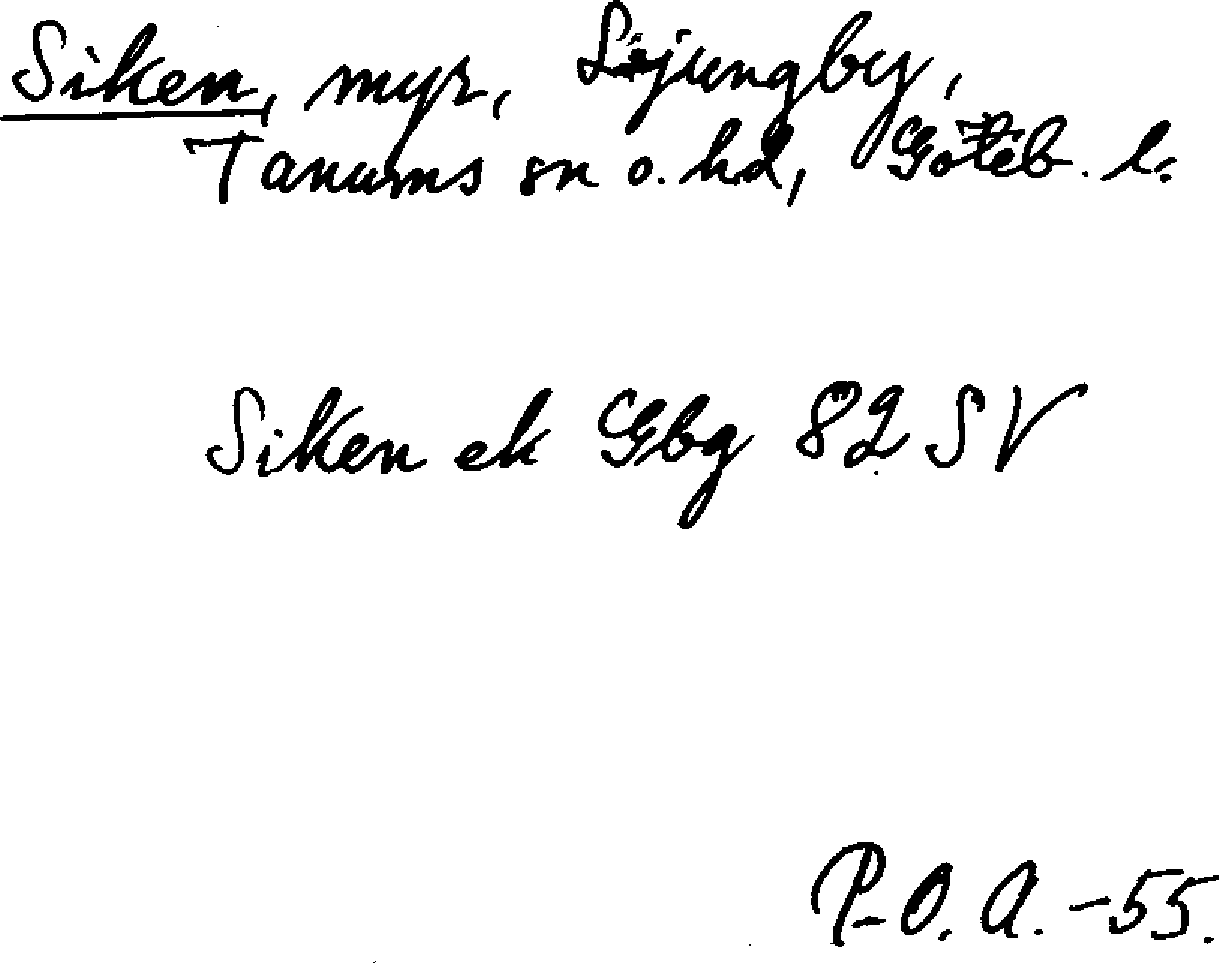 Siken, myr, Ljungby,
Tanums sn o. hd, Göteb. l.
Siken ek Gbg 82 SV
P-O. A. -55.